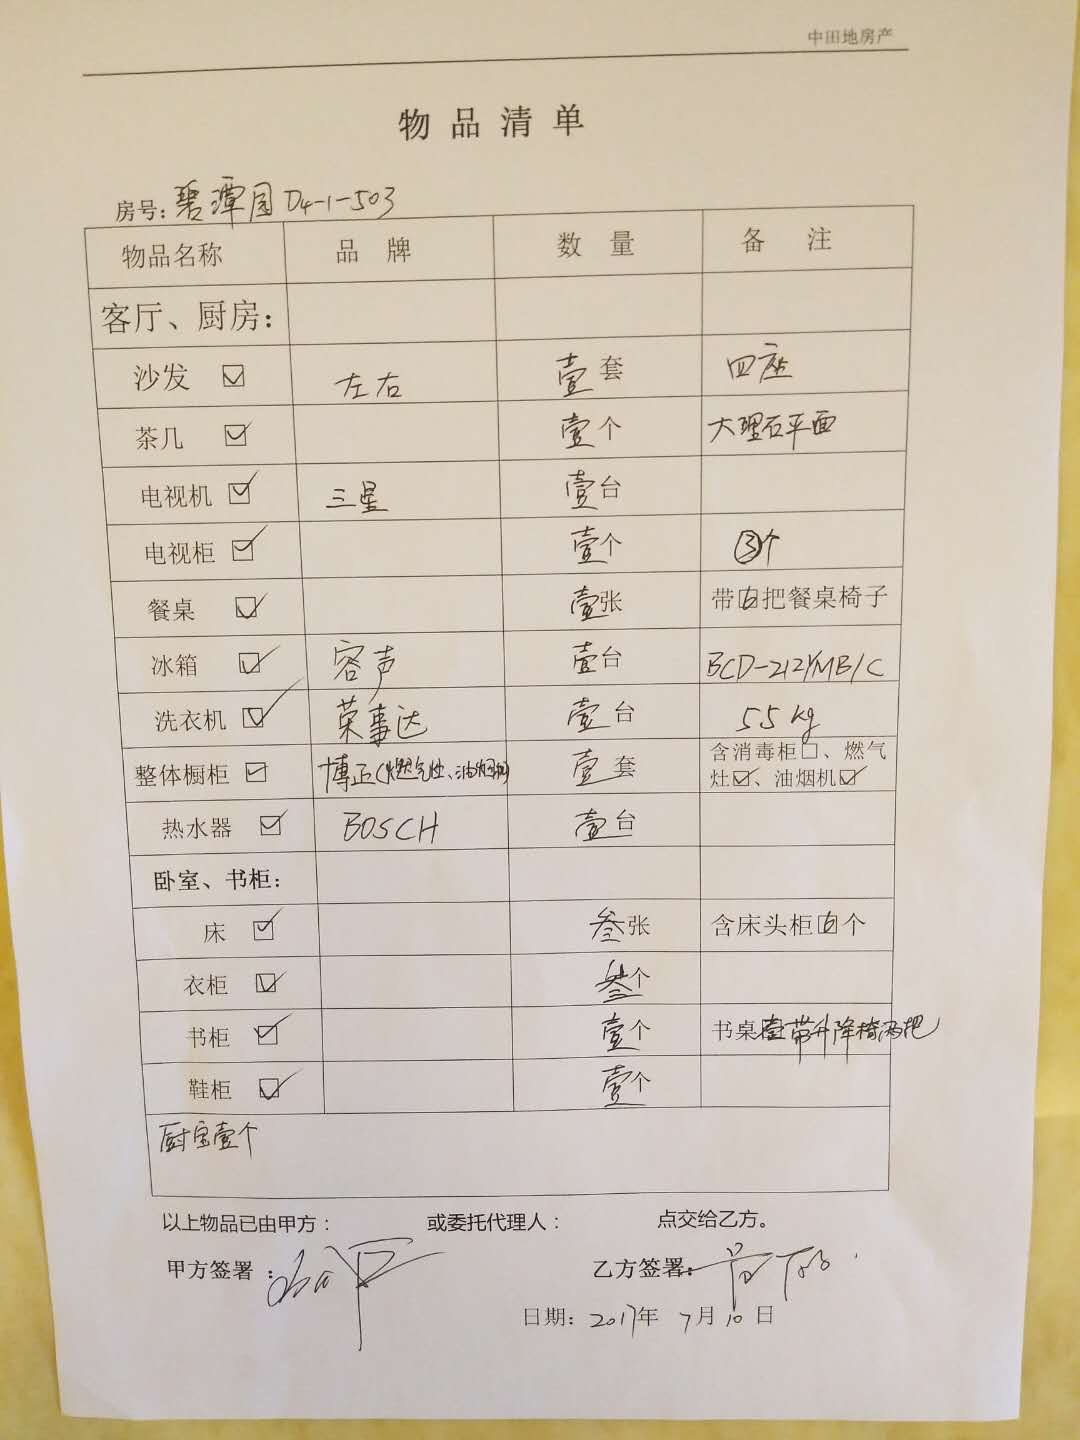 中田地房产
物品清单
房号：碧潭园D4-1-503
物品名称 品牌 数量 备注
客厅、厨房：
沙发 ☑ 左右 壹套 四座
茶几 ☑ 壹个 大理石平面
电视机 ☑ 三星 壹台
电视柜 ☑ 壹个 ③个
餐桌 ☑ 壹张 带 把餐桌椅子
冰箱 ☑ 容声 壹台 BCD-212YMB/C
洗衣机 ☑ 荣事达 壹台 55kg
整体橱柜 ☑ 博正(燃气灶、油烟机) 壹套 含消毒柜□、燃气
灶☑、油烟机☑
热水器 ☑ BOSCH 壹台
卧室、书柜：
床 ☑ 叁张 含床头柜 个
衣柜 ☑ 叁个
书柜 ☑ 壹个 书桌壹带升降椅两把
鞋柜 ☑ 壹个
厨宝壹个
以上物品已由甲方： 或委托代理人： 点交给乙方。
甲方签署： 乙方签署：
日期：2017年7月10日